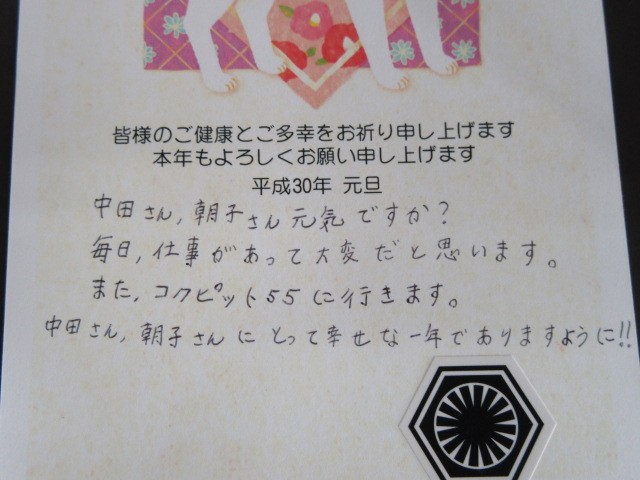 皆様のご健康とご多幸をお祈り申し上げます
本年もよろしくお願い申し上げます
平成30年 元旦
中田さん,朝子さん元気ですか?
毎日,仕事があって大変だと思います。
また,コクピット55に行きます。
中田さん,朝子さんにとって幸せな一年でありますように!!